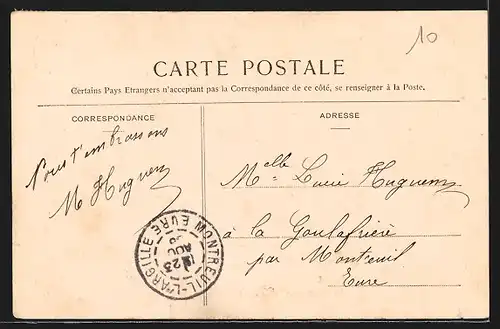 10
CARTE POSTALE
Certains Pays Etrangers n'acceptant pas la Correspondance de ce côté, se renseigner à la Poste.
CORRESPONDANCE
ADRESSE
Nous t'embrassons
M Huguen
Melle Lucie Huguen
à la Goulafrière
par Montreuil
Eure
MONTREUIL-L'ARGILLE EURE
23
AOU